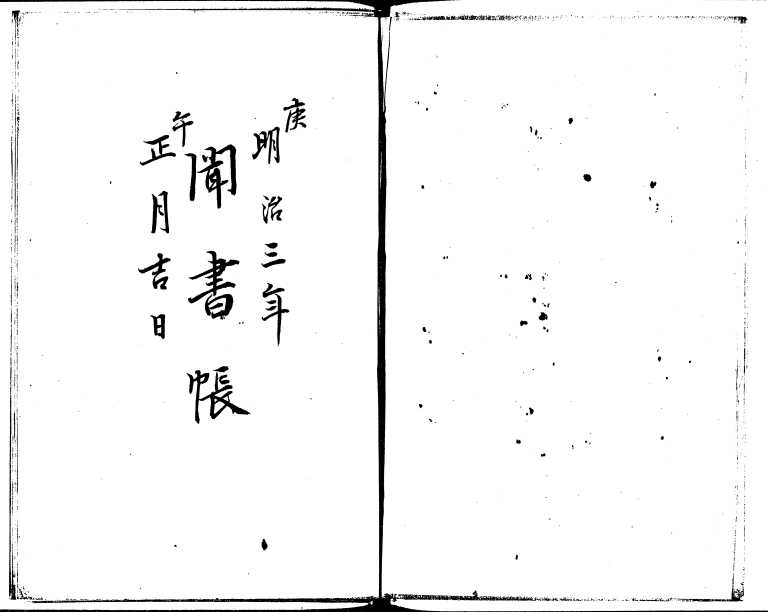 庚
明治三年
聞書帳
午
正月吉日